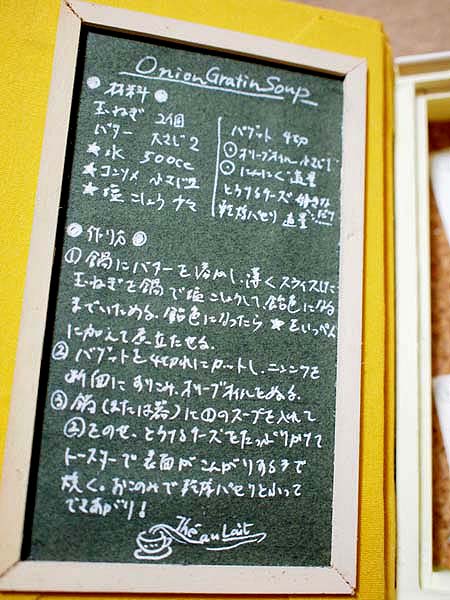 Onion Gratin Soup
●材料●
玉ねぎ 2個
バター 大さじ2
★水 500cc
★コンソメ 小さじ2
★塩こしょう 少々
バゲット 4切
○オリーブオイル 小さじ1
○にんにく 適量
とろけるチーズ 好きなだけ
乾燥パセリ 適量
●作り方●
①鍋にバターを溶かし、薄くスライスした
玉ねぎを鍋で塩こしょうして、飴色になる
までいためる。飴色になったら★をいっぺん
に加えて煮立たせる。
②バゲットを4切れにカットし、ニンニクを
断面にすりこみ、オリーブオイルをぬる。
③鍋(または器)に①のスープを入れて
②をのせ、とろけるチーズをたっぷりかけて
トースターで表面がこんがりするまで
焼く。おこのみで乾燥パセリをふって
できあがり!
Thé au Lait